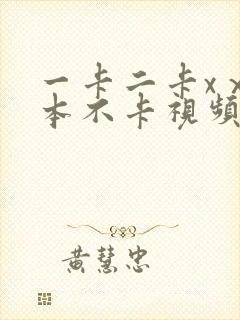 一卡二卡x x
本不卡視頻
黃慧忠